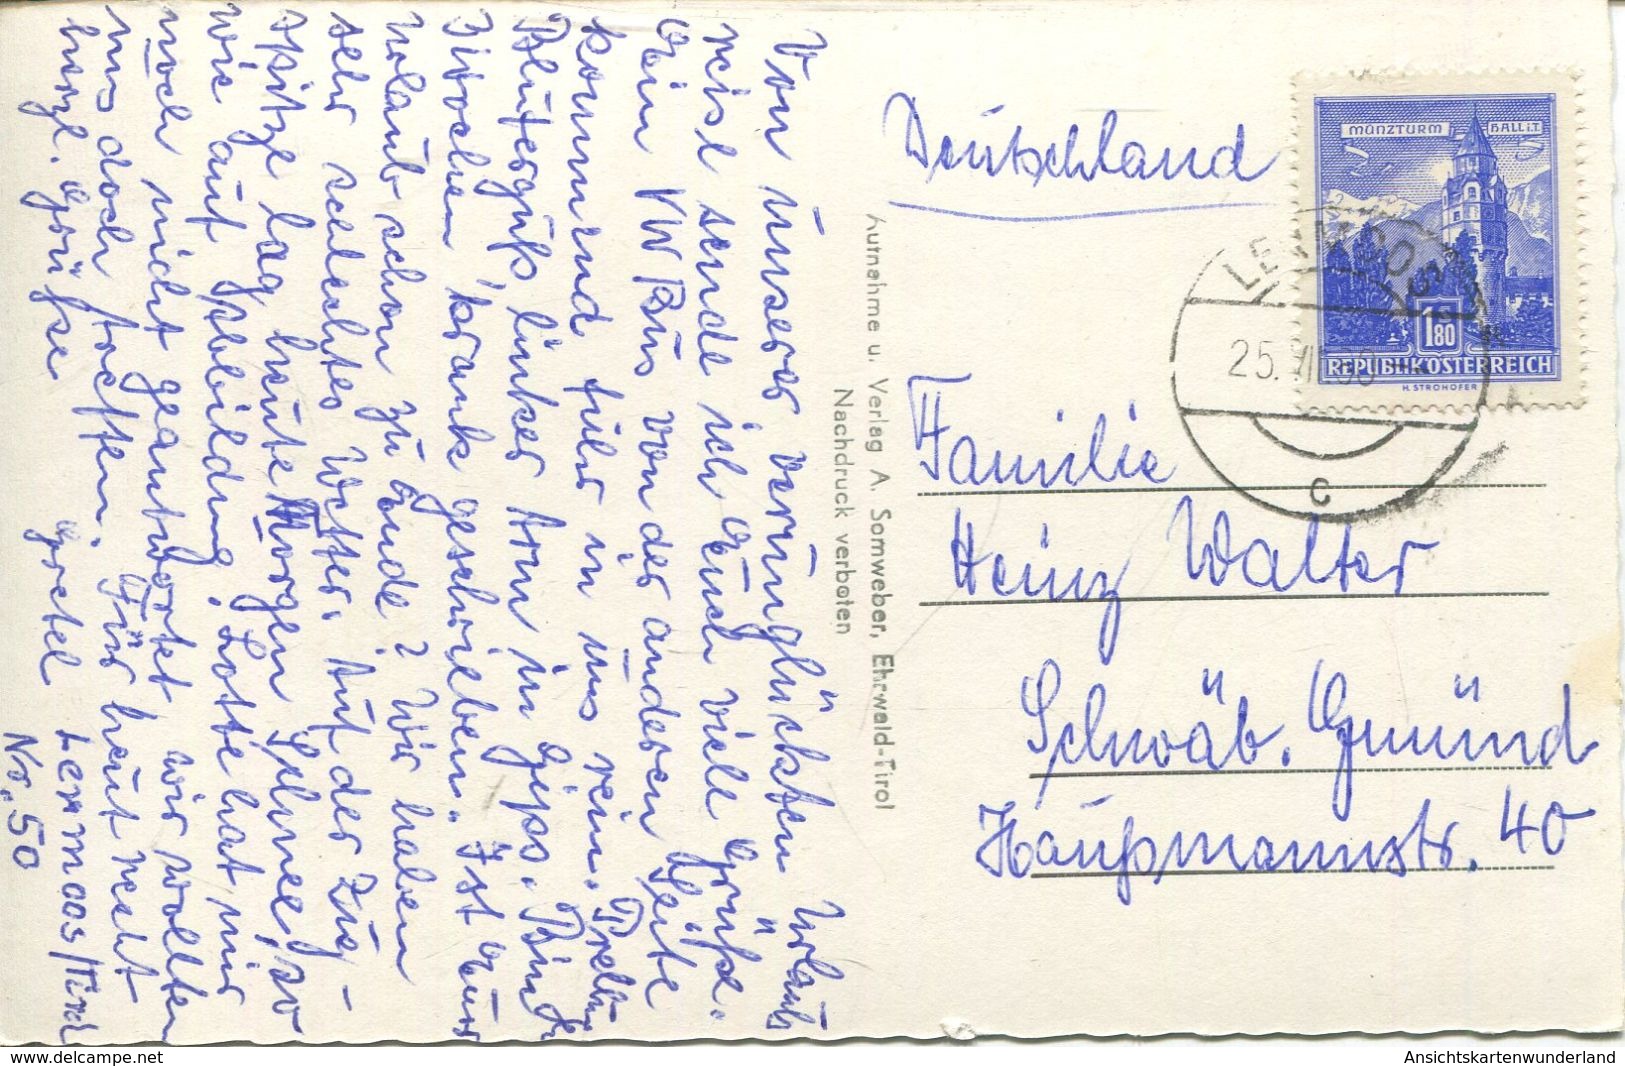 Von unserer verunglückten Urlaubs
reise sende ich Euch viele Grüße.
Ein VW Bus von der anderen Seite
kommend fuhr in uns rein.
Bluterguß, linker Arm in Gips.
Wochen krank geschrieben. Ist Euer
Urlaub schon zu Ende? Wir haben
sehr schlechtes Wetter. Auf der Zug-
spitze lag heute Morgen Schnee, so
wie auf Abbildung. Lotte hat mir
noch nicht geantwortet wir wollten
uns doch treffen. Für heut recht
herzl. Grüße Gretel
Lermoos/Tirol
Nr. 50
Aufnahme u. Verlag A. Somweber, Ehrwald-Tirol
Nachdruck verboten
Deutschland
MÜNZTURM HALL i.T.
1.80
REPUBLIK ÖSTERREICH
H. STROHOFER
LERMOOS
25.
c
Familie
Heinz Walter
Schwäb. Gmünd
Haußmannstr. 40
www.delcampe.net
Ansichtskartenwunderland